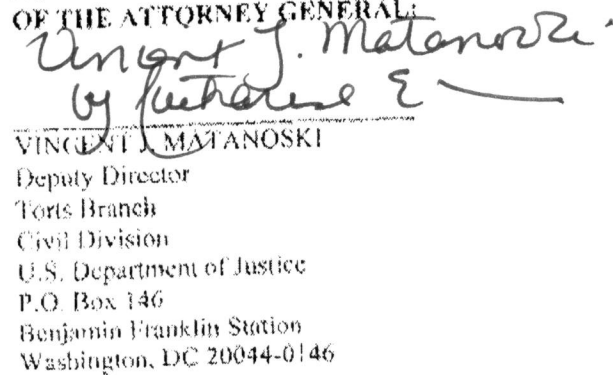 OF THE ATTORNEY GENERAL:
Vincent J. Matanoski
by E
VINCENT J. MATANOSKI
Deputy Director
Torts Branch
Civil Division
U.S. Department of Justice
P.O. Box 146
Benjamin Franklin Station
Washington, DC 20044-0146